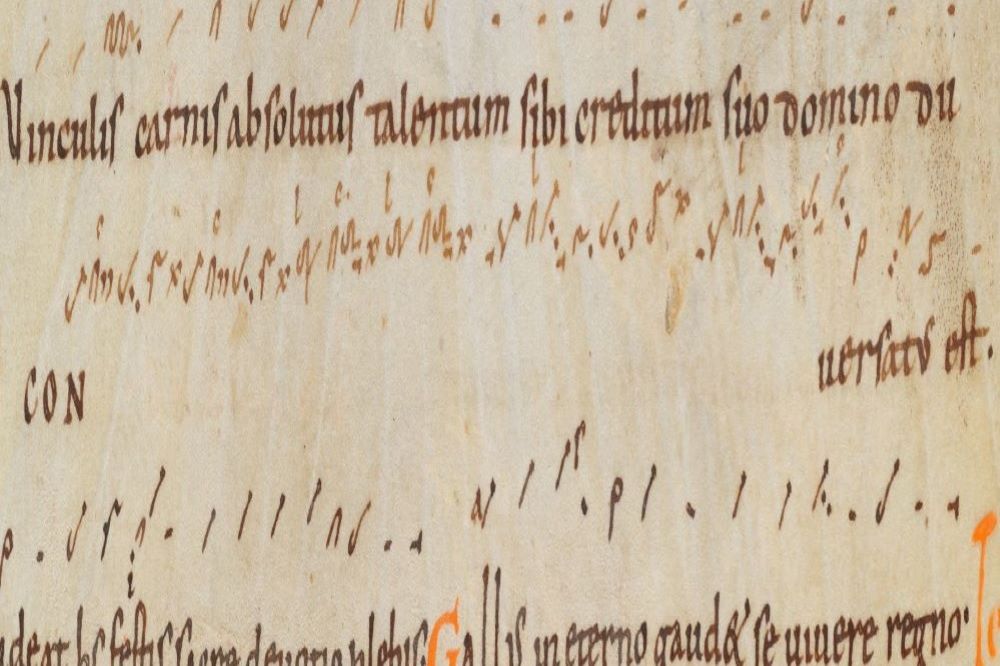 Vinculis carnis absolutus talentum sibi creditum suo domino du
CON uersatus est.
ideat hs festis siere deuotio plebis. Gallus in eterno gaud& se uiuere regno. Ie